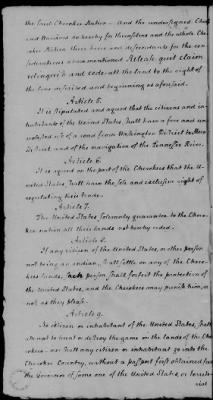 the said Cherokee Nation - And the undersigned Chiefs
and Warriors do hereby for themselves and the whole Cherokee
Nation their heirs and descendants for the considerations
above mentioned Release quit claim
relinquish and cede all the land to the right of
the line described and beginning as aforesaid.
Article 5.
It is stipulated and agreed that the citizens and inhabitants
of the United States, shall have a free and unmolested
use of a road from Washington District to Mero
District and of the navigation of the Tennessee River.
Article 6.
It is agreed on the part of the Cherokees that the United
States, shall have the sole and exclusive right of
regulating their trade.
Article 7.
The United States, solemnly guarantee to the Cherokee
nation all their lands not hereby ceded.
Article 8.
If any citizen of the United States, or other person
not being an indian, shall settle on any of the Cherokees
lands, such person shall forfeit the protection of
the United States, and the Cherokees may punish him, or
not, as they please.
Article 9.
No citizen or inhabitant of the United States, shall
attempt to hunt or destroy the game on the lands of the Cherokees
nor shall any citizen or inhabitant go into the
Cherokee Country, without a passport first obtained from
the Governor of some one of the United States, or territorial